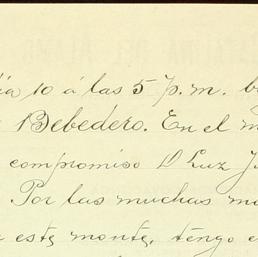 día 10 á las 5 p.m.
Bebedero. En el
compromiso D Luz J
Por las muchas
esta monte, tengo